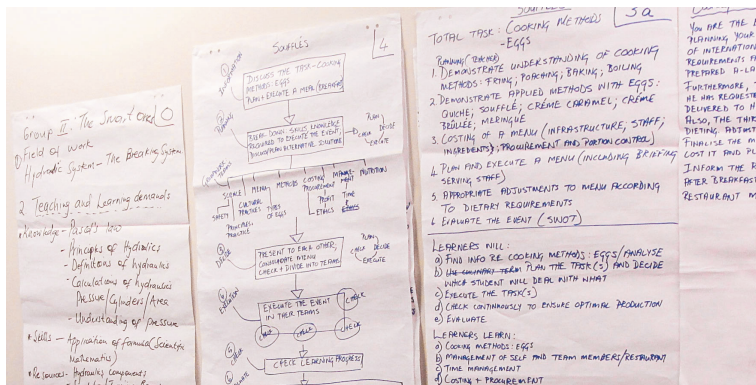 Group II: The Smart ones
Field of work
Hydraulic System - The Breaking System
2 Teaching and Learning demands
Knowledge - Pascal's law
- Principles of Hydraulics
- Definitions of hydraulics
- Calculations of hydraulics
Pressure/Cylinders/Area
- Understanding of pressure
Skills - Application of formula (Scientific
Mathematics)
Resources - Hydraulic components
Soufflés
4
1
INFORMATION
DISCUSS THE TASK - COOKING
METHODS: EGGS
PLAN + EXECUTE A MENU (BREAKFAST)
2
BREAK DOWN SKILLS, KNOWLEDGE
REQUIRED TO EXECUTE THE EVENT,
PLAN
DECIDE
EXECUTE
SCIENCE
MENU
METHODS
COSTING
PROCUREMENT
MANAGE-
MENT
NUTRITION
SAFETY
CULTURAL
TYPES
OF EGGS
PROFIT
ETHICS
TIME
3
DECIDE
PRESENT TO EACH OTHER,
CONSOLIDATE MENU
CHECK + DIVIDE INTO TEAMS
PLAN
DECIDE
EXECUTE
4
EXECUTION
EXECUTE THE EVENT
IN THEIR TEAMS
CHECK
CHECK
CHECK
CHECK
5
CHECK
CHECK LEARNING PROGRESS
6
Soufflés
3a
TOTAL TASK: COOKING METHODS
- EGGS
PLANNING (TEACHER)
1. DEMONSTRATE UNDERSTANDING OF COOKING
METHODS: FRYING; POACHING; BAKING; BOILING
2. DEMONSTRATE APPLIED METHODS WITH EGGS:
QUICHE; SOUFFLÉ; CRÈME CARAMEL; CRÈME
BRÛLÉE; MERINGUE
3. COSTING OF A MENU (INFRASTRUCTURE; STAFF;
INGREDIENTS); PROCUREMENT AND PORTION CONTROL)
4. PLAN AND EXECUTE A MENU (INCLUDING BRIEFING
SERVING STAFF)
5. APPROPRIATE ADJUSTMENTS TO MENU ACCORDING
TO DIETARY REQUIREMENTS
6. EVALUATE THE EVENT (SWOT)
LEARNERS WILL:
a) FIND INFO RE COOKING METHODS: EGGS/ANALYSE
b) PLAN THE TASK(S) AND DECIDE
WHICH STUDENT WILL DEAL WITH WHAT
c) EXECUTE THE TASK(S)
d) CHECK CONTINUOUSLY TO ENSURE OPTIMAL PRODUCTION
e) EVALUATE
LEARNERS LEARN:
a) COOKING METHODS: EGGS
b) MANAGEMENT OF SELF AND TEAM MEMBERS/RESTAURANT
c) TIME MANAGEMENT
d) COSTING + PROCUREMENT
YOU ARE THE
PLANNING YOUR
OF INTERNATION
REQUIREMENTS
PREPARED A-LA
FURTHERMORE,
HE HAS REQUESTE
DELIVERED TO
ALSO, THE THIR
DIETING, ADJUST
FINALISE THE M
COST IT AND PL
INFORM THE R
AFTER BREAKFAS
RESTAURANT M